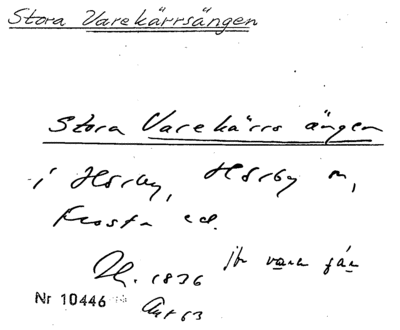 Stora Varekärrsängen
Stora Varekärrs ängen
i Hörby, Hörby sn,
Frosta hd.
1836 jfr vara får
Nr 10446 Akt 63